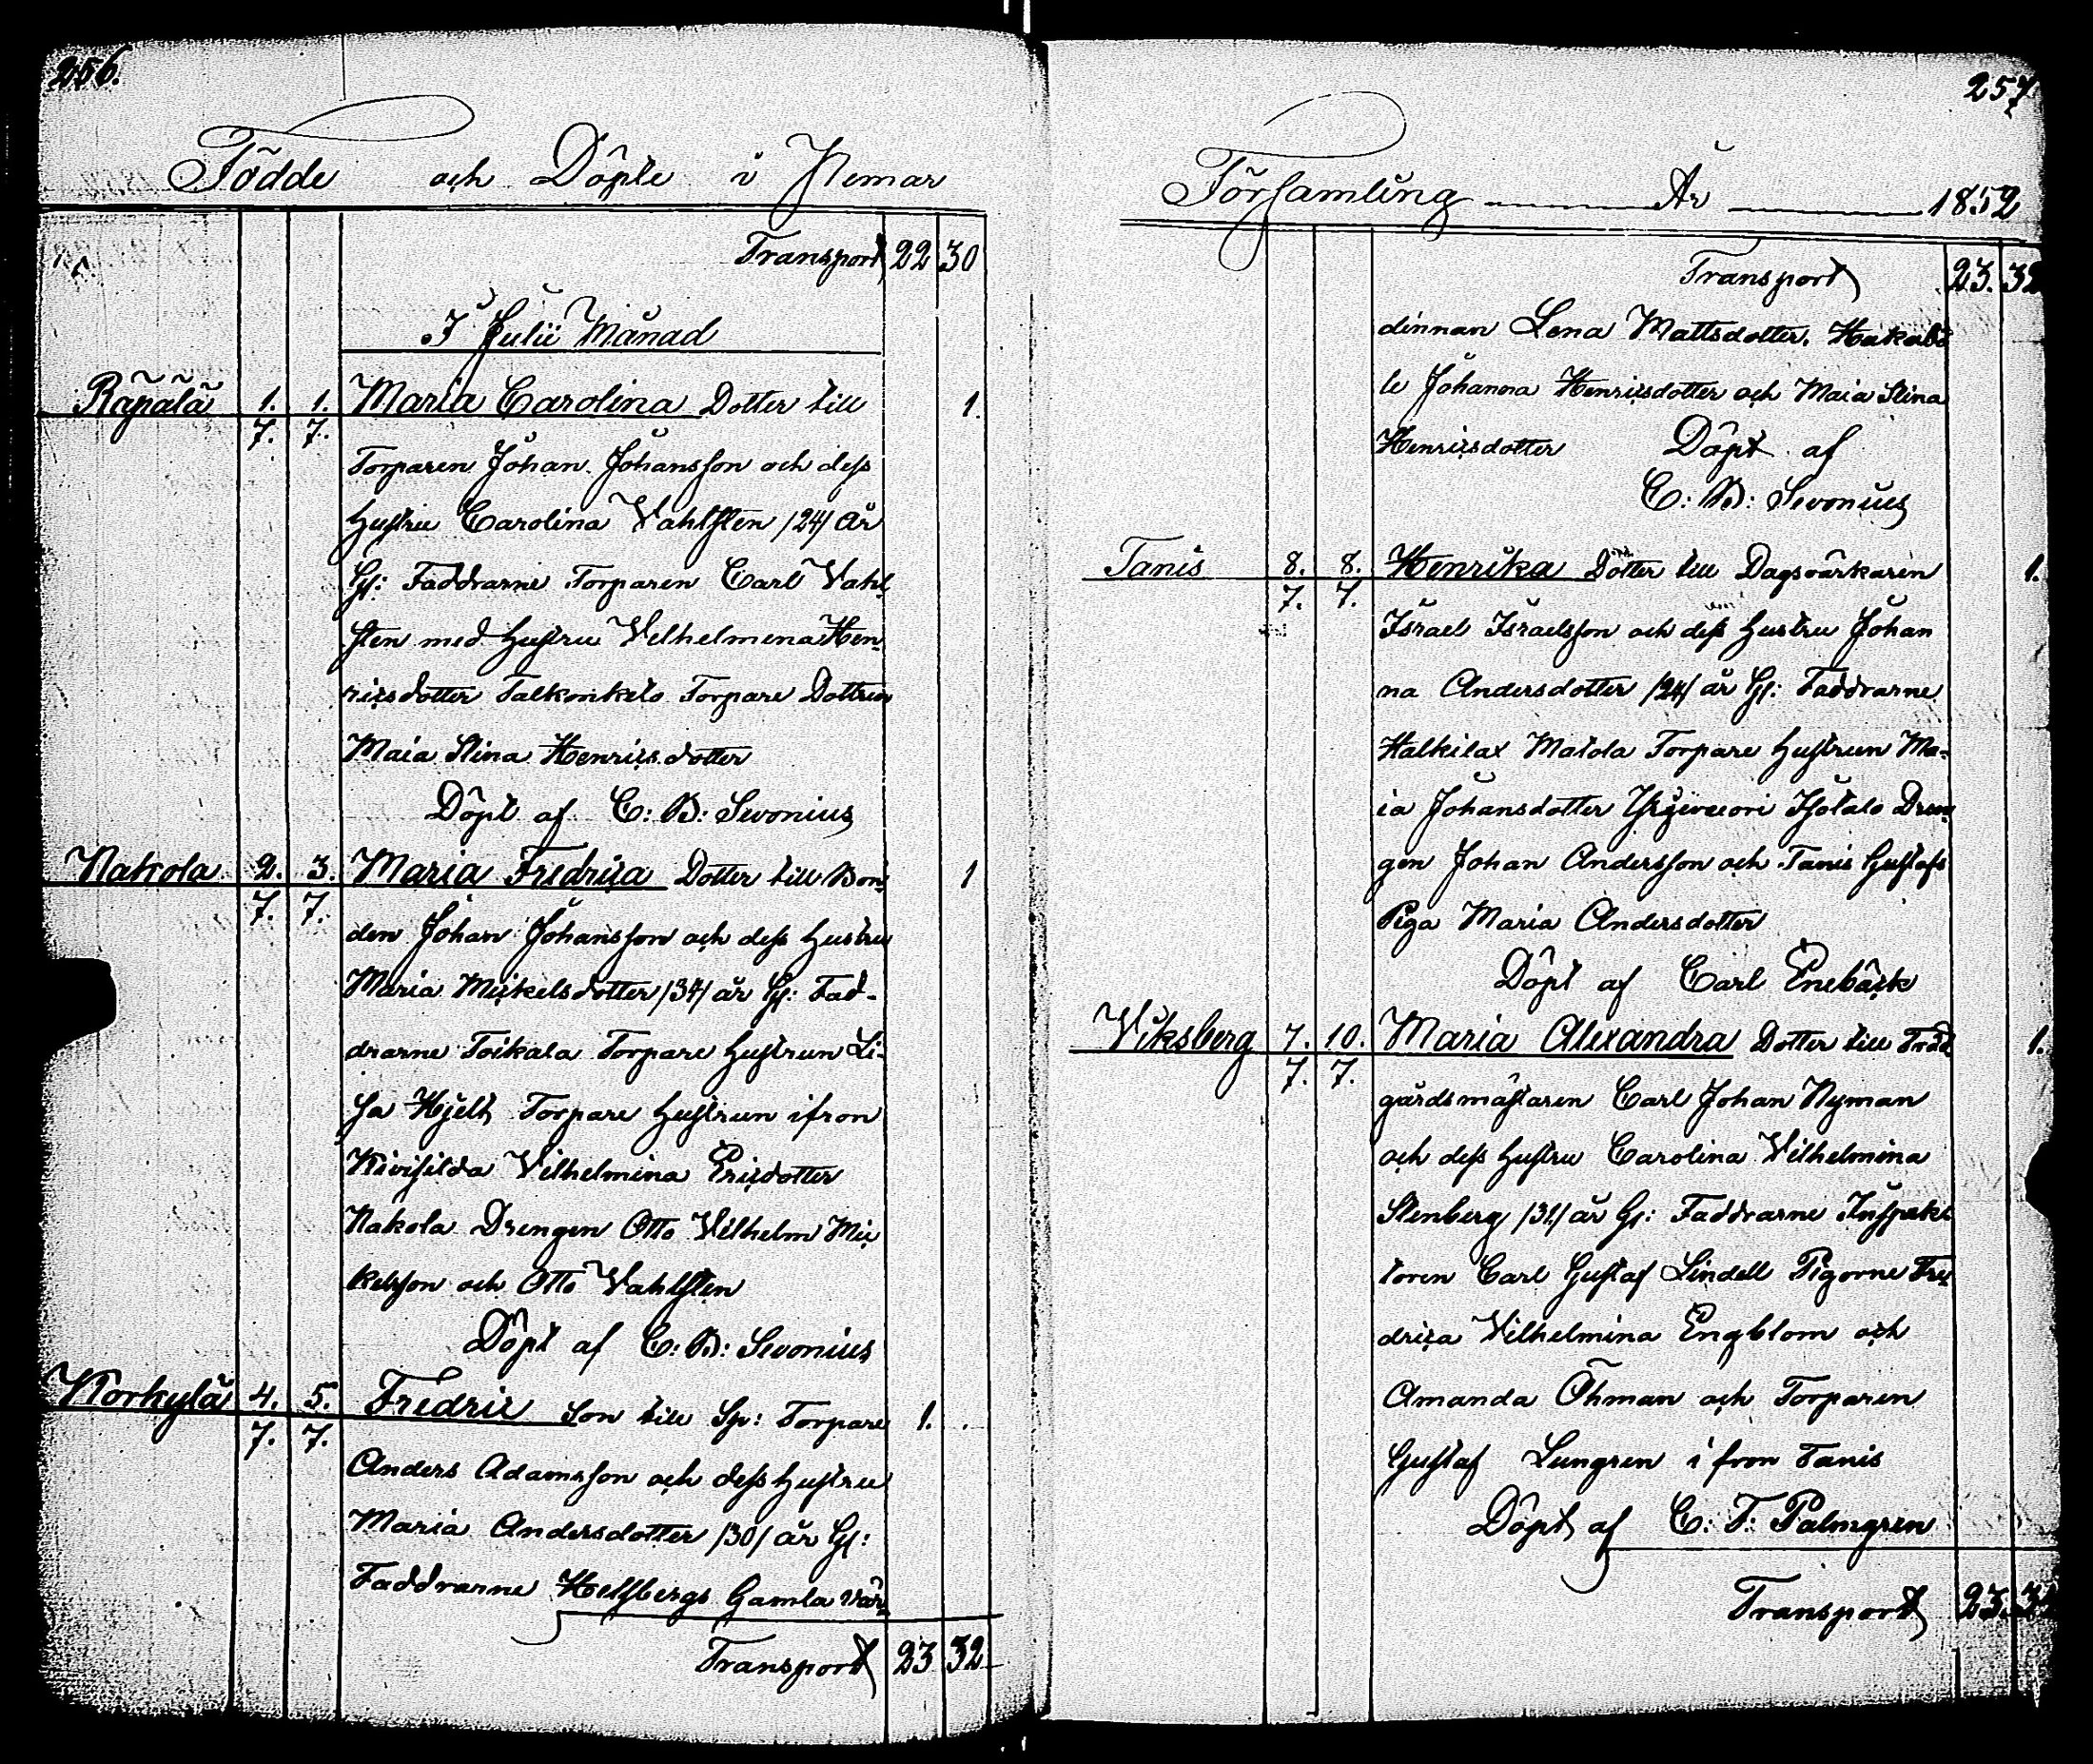 256.
Födde och Döpte i Pemar
Transport 22 30
I Julii Månad
Räpälä 1. 1. Maria Carolina Dotter till 1.
7. 7.
Torparen Johan Johansson och dess
Hustru Carolina Vahlsten /24/ år
Gl: Faddrarne Torparen Carl Vahl
sten med Hustru Velhelmena Hen
ricsdotter Talkonkelo Torpare Dottren
Maia Stina Henricsdotter
Döpt af C: B: Sevonius
Nakola 2. 3. Maria Fredrica Dotter till Bon 1
7. 7.
den Johan Johansson och dess Hustru
Maria Mickelsdotter /34/ år Gl: Fad-
drarne Toikala Torpare Hustrun Li-
sa Hjelt Torpare Hustrun ifron
Kivisilda Vilhelmina Ericdotter
Nakola Drengen Otto Vilhelm Mic
kelsson och Otto Vahlsten
Döpt af C: B: Sevonius
Korkylä 4. 5. Fredric Son till Sp: Torpare 1.
7. 7.
Anders Adamsson och dess Hustru
Maria Andersdotter /30/ år Gl:
Faddrarne Gamla Vär
Transport 23 32
257
Församling År 1852
Transport 23. 32
dinnan Lena Mattsdotter. Hakabö
le Johanna Henricsdotter och Maia Stina
Henricsdotter Döpt af
C: B: Sevonius
Tanis 8. 8. Henrika Dotter till Dagsvärkaren 1.
7. 7.
Israel Israelsson och dess Hustru Johan
na Andersdotter /24/ år Gl: Faddrarne
Halkilax Matola Torpare Hustrun Ma-
ia Johansdotter Isotalo Dren
gen Johan Andersson och Tanis Gustafs
Piga Maria Andersdotter
Döpt af Carl Enebäck
Viksberg 7. 10. Maria Alexandra Dotter till Träd 1.
7. 7.
gårdsmästaren Carl Johan Nyman
och dess Hustru Carolina Vilhelmina
Stenberg /31/ år Gl: Faddrarne Inspek
toren Carl Gustaf Lindell Pigorne Fre
drica Vilhelmina Engblom och
Amanda Öhman och Torparen
Gustaf Lungren i fron Tanis
Döpt af C: F: Palmgren
Transport 23.